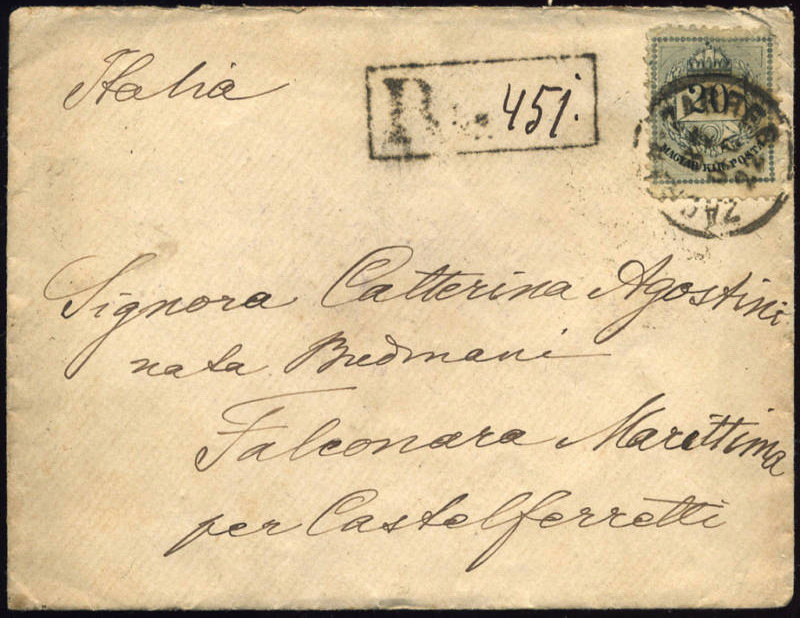 Italia
R 451.
20
MAGYAR KIR. POSTA
Signora Catterina Agostini
nata Budmani
Falconara Marittima
per Castelferretti